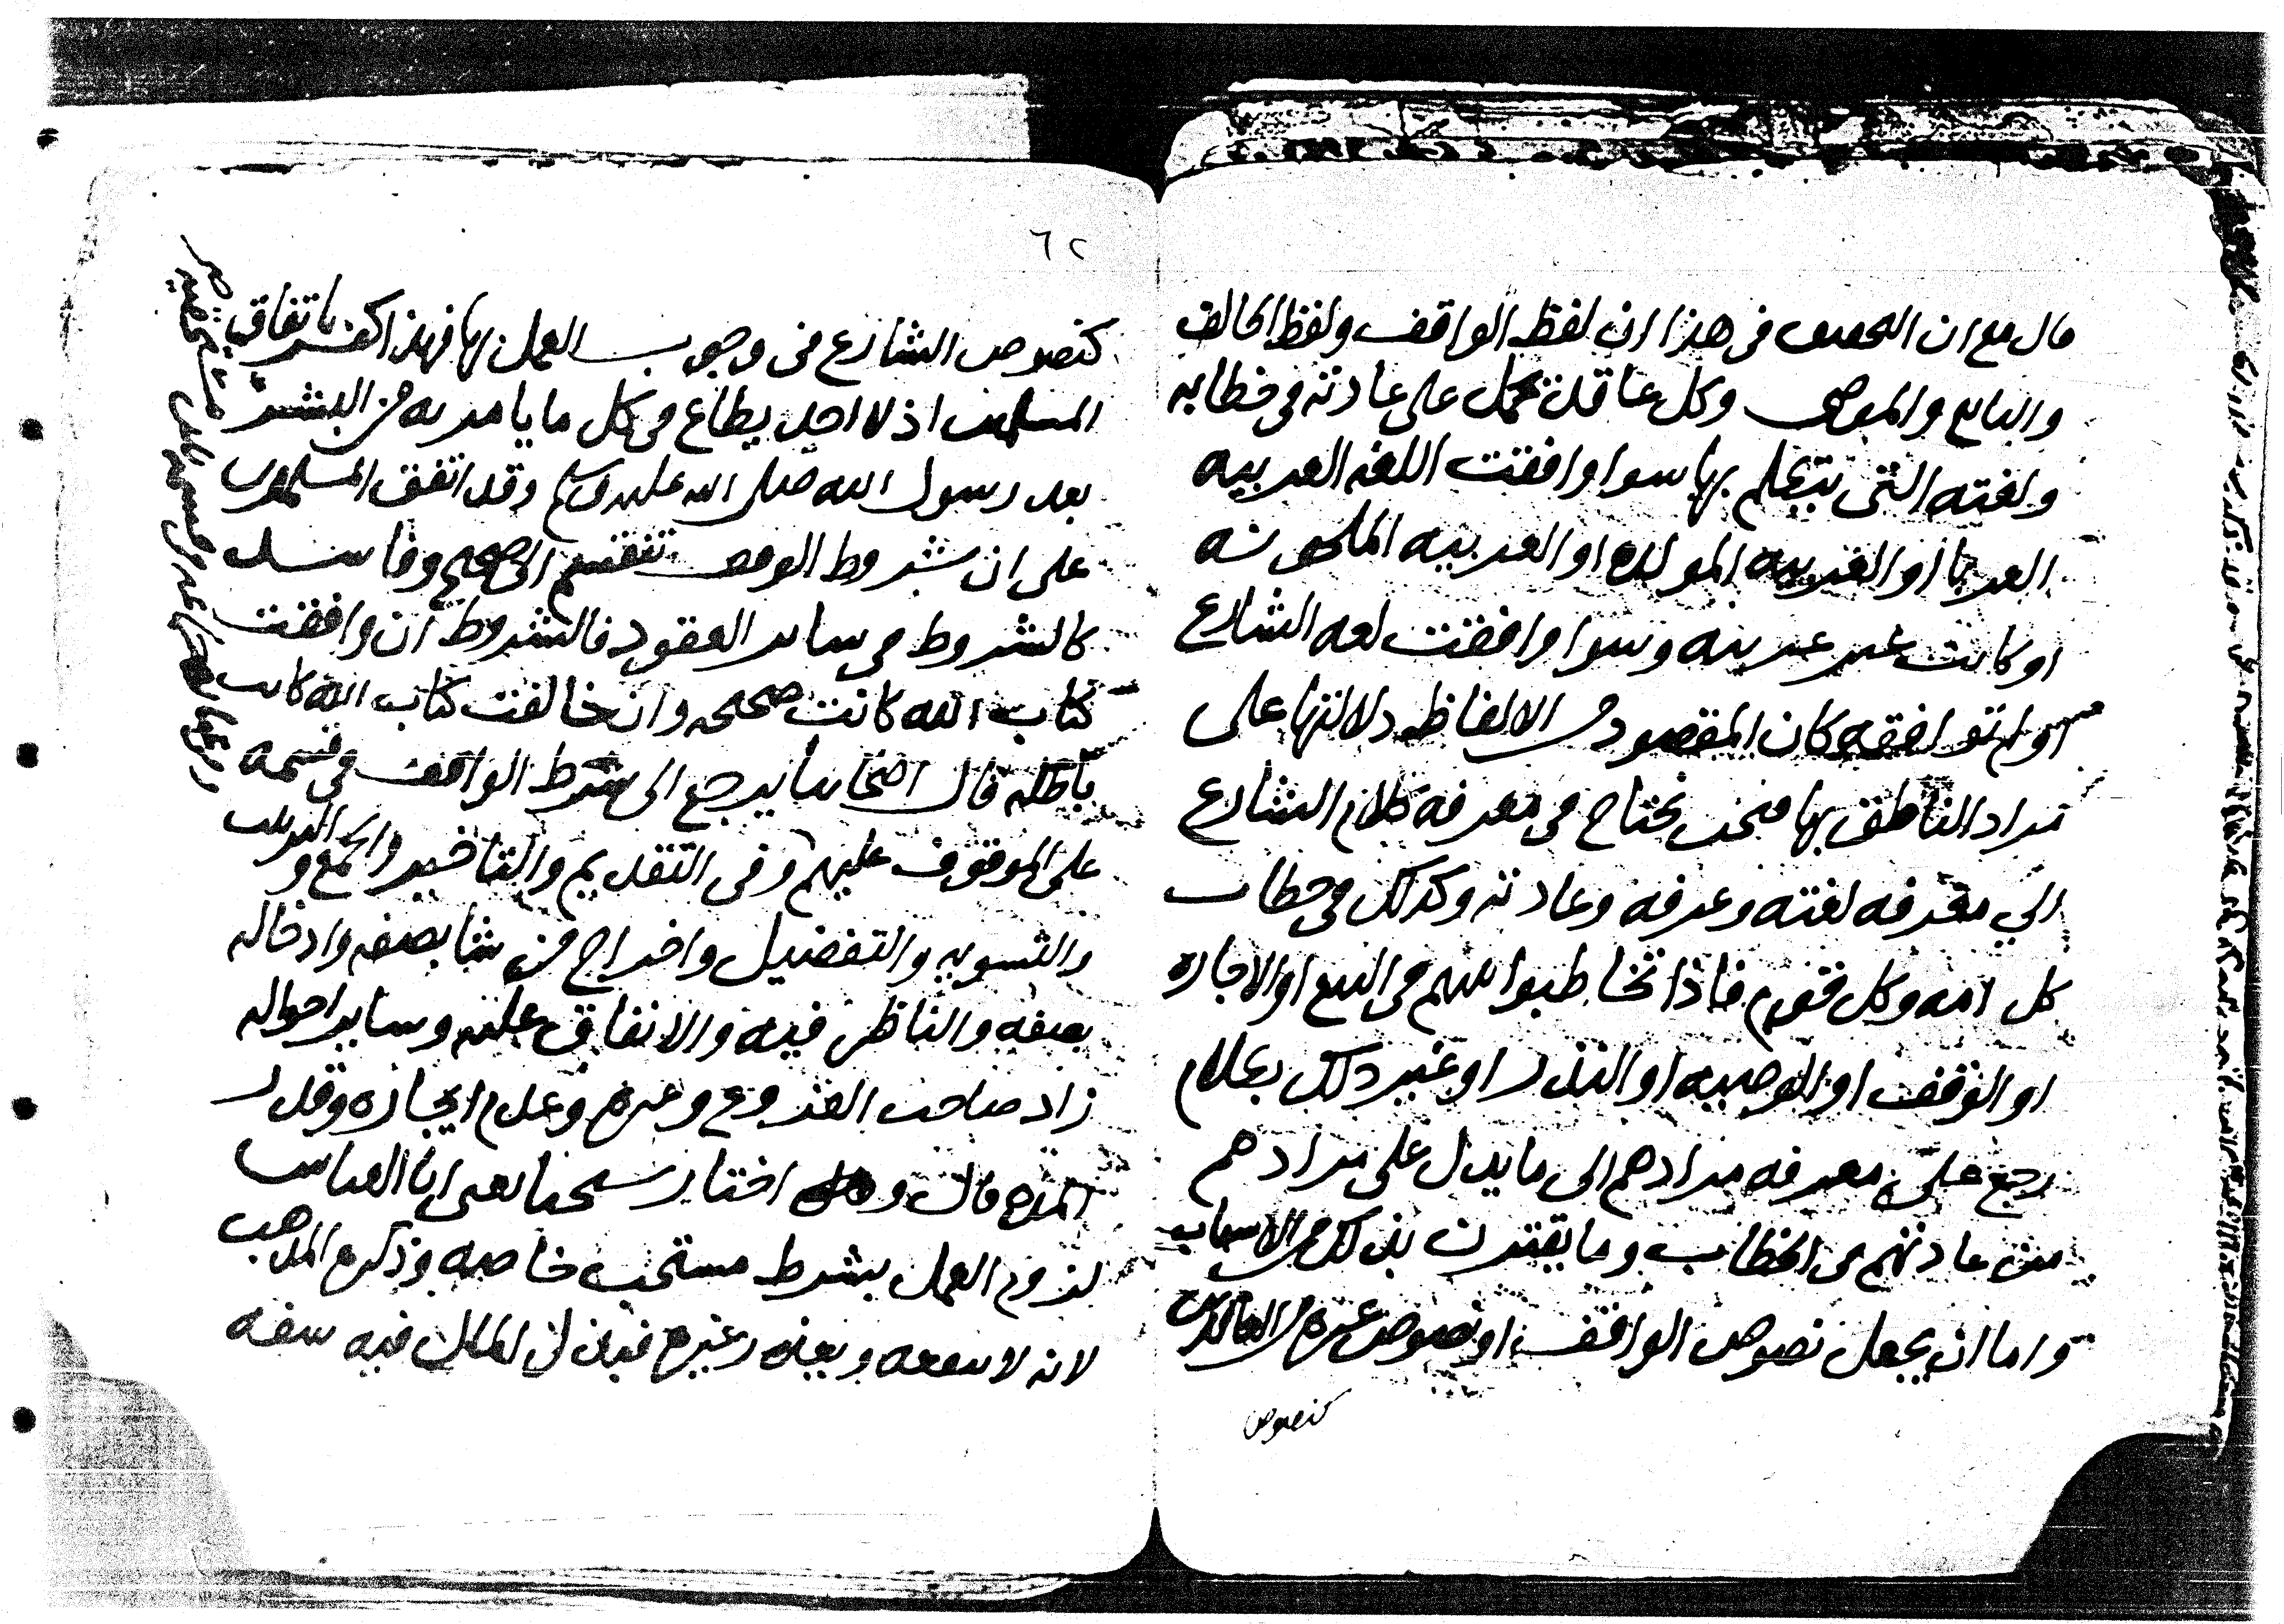 قال مع ان التحقيق في هذا ان لفظ الواقف ولفظ الحالف
والبايع والموصي وكل عاقد يحمل على عادته في خطابه
ولغته التي يتكلم بها سوا وافقت اللغه العربيه
العربا او العربيه المولده او العربيه الملحونه
او كانت غير عربيه وسوا وافقت لغه الشارع
او لم توافقه كان المقصود من الالفاظ دلالتها على
مراد الناطق بها فنحن نحتاج في معرفه كلام الشارع
الي معرفه لغته وعرفه وعادته وكذلك في خطاب
كل امه وكل قوم فاذا تخاطبوا بينهم في البيع او الاجاره
او الوقف او الوصيه او النذر او غير ذلك بكلام
رجع على معرفه مرادهم الى ما يدل على مرادهم
من عادتهم في الخطاب وما يقترن بذلك من الاسباب
واما ان يجعل نصوص الواقف او نصوص غيره من العاقدين
كنصوص
٦٢
كنصوص الشارع في وجوب العمل بها فهذا كفر باتفاق
المسلمين اذ لا احد يطاع في كل ما يامر به من البشر
بعد رسول الله صلى الله عليه وسلم وقد اتفق المسلمون
على ان شروط الوقف تنقسم الى صحيح وفاسد
كالشروط في ساير العقود فالشروط ان وافقت
كتاب الله كانت صحيحه وان خالفت كتاب الله كانت
باطله قال اصحابنا يرجع الى شرط الواقف في قسمه
على الموقوف عليهم وفي التقديم والتاخير والجمع و الترتيب
والتسويه والتفضيل واخراج من شا بصفه وادخاله
بصفه والناظر فيه والانفاق عليه وساير احواله
زاد صاحب الفروع وغيره وعدم ايجاره وقدر
المده قال و اختار شيخنا يعني ابا العباس
لزوم العمل بشرط مستحب خاصه وذكره المذهب
لانه لا ينفعه ويعذر غيره فبذل المال فيه سفه